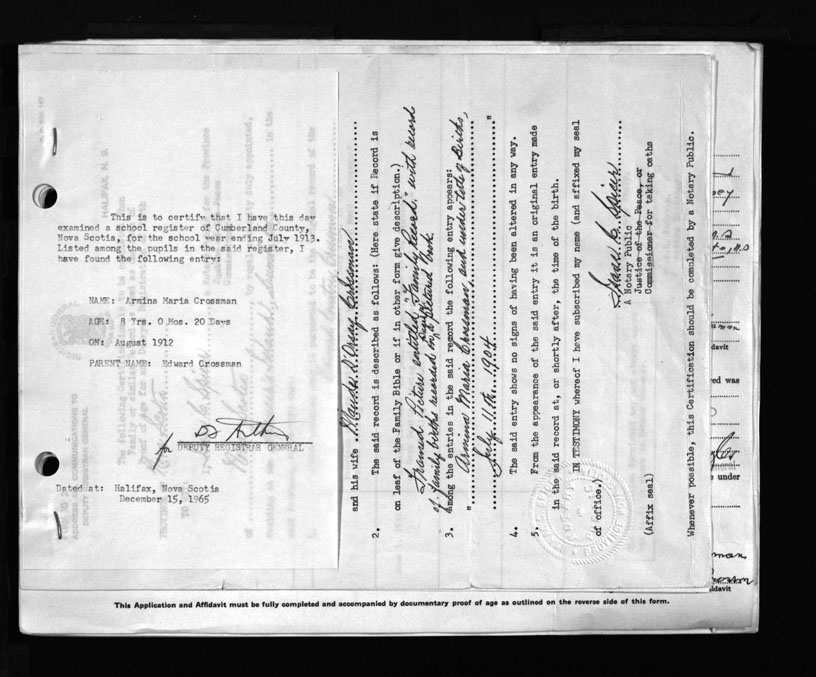 This is to certify that I have this day
examined a school register of Cumberland County,
Nova Scotia, for the school year ending July 1913.
Listed among the pupils in the said register, I
have found the following entry:
NAME: Armina Maria Crossman
AGE: 8 Yrs. 0 Mos. 20 Days
ON: August 1912
PARENT NAME: Edward Crossman
for
DEPUTY REGISTRAR GENERAL
Dated at: Halifax, Nova Scotia
December 15, 1965
and his wife Maude D'Orsay Crossman
2. The said record is described as follows: (Here state if Record is
on leaf of the Family Bible or if in other form give description.)
Framed Picture entitled "Family Record" with record
of family births recorded on
3. among the entries in the said record the following entry appears:
" Armina Maria Crossman, and under date of Births,
July 11th 1904 "
4. The said entry shows no signs of having been altered in any way.
5. From the appearance of the said entry it is an original entry made
in the said record at, or shortly after, the time of the birth.
IN TESTIMONY whereof I have subscribed my name (and affixed my seal
of office.)
A Notary Public
Justice of the Peace, or
Commissioner for taking oaths
(Affix seal)
Whenever possible, this Certification should be completed by a Notary Public.
This Application and Affidavit must be fully completed and accompanied by documentary proof of age as outlined on the reverse side of this form.